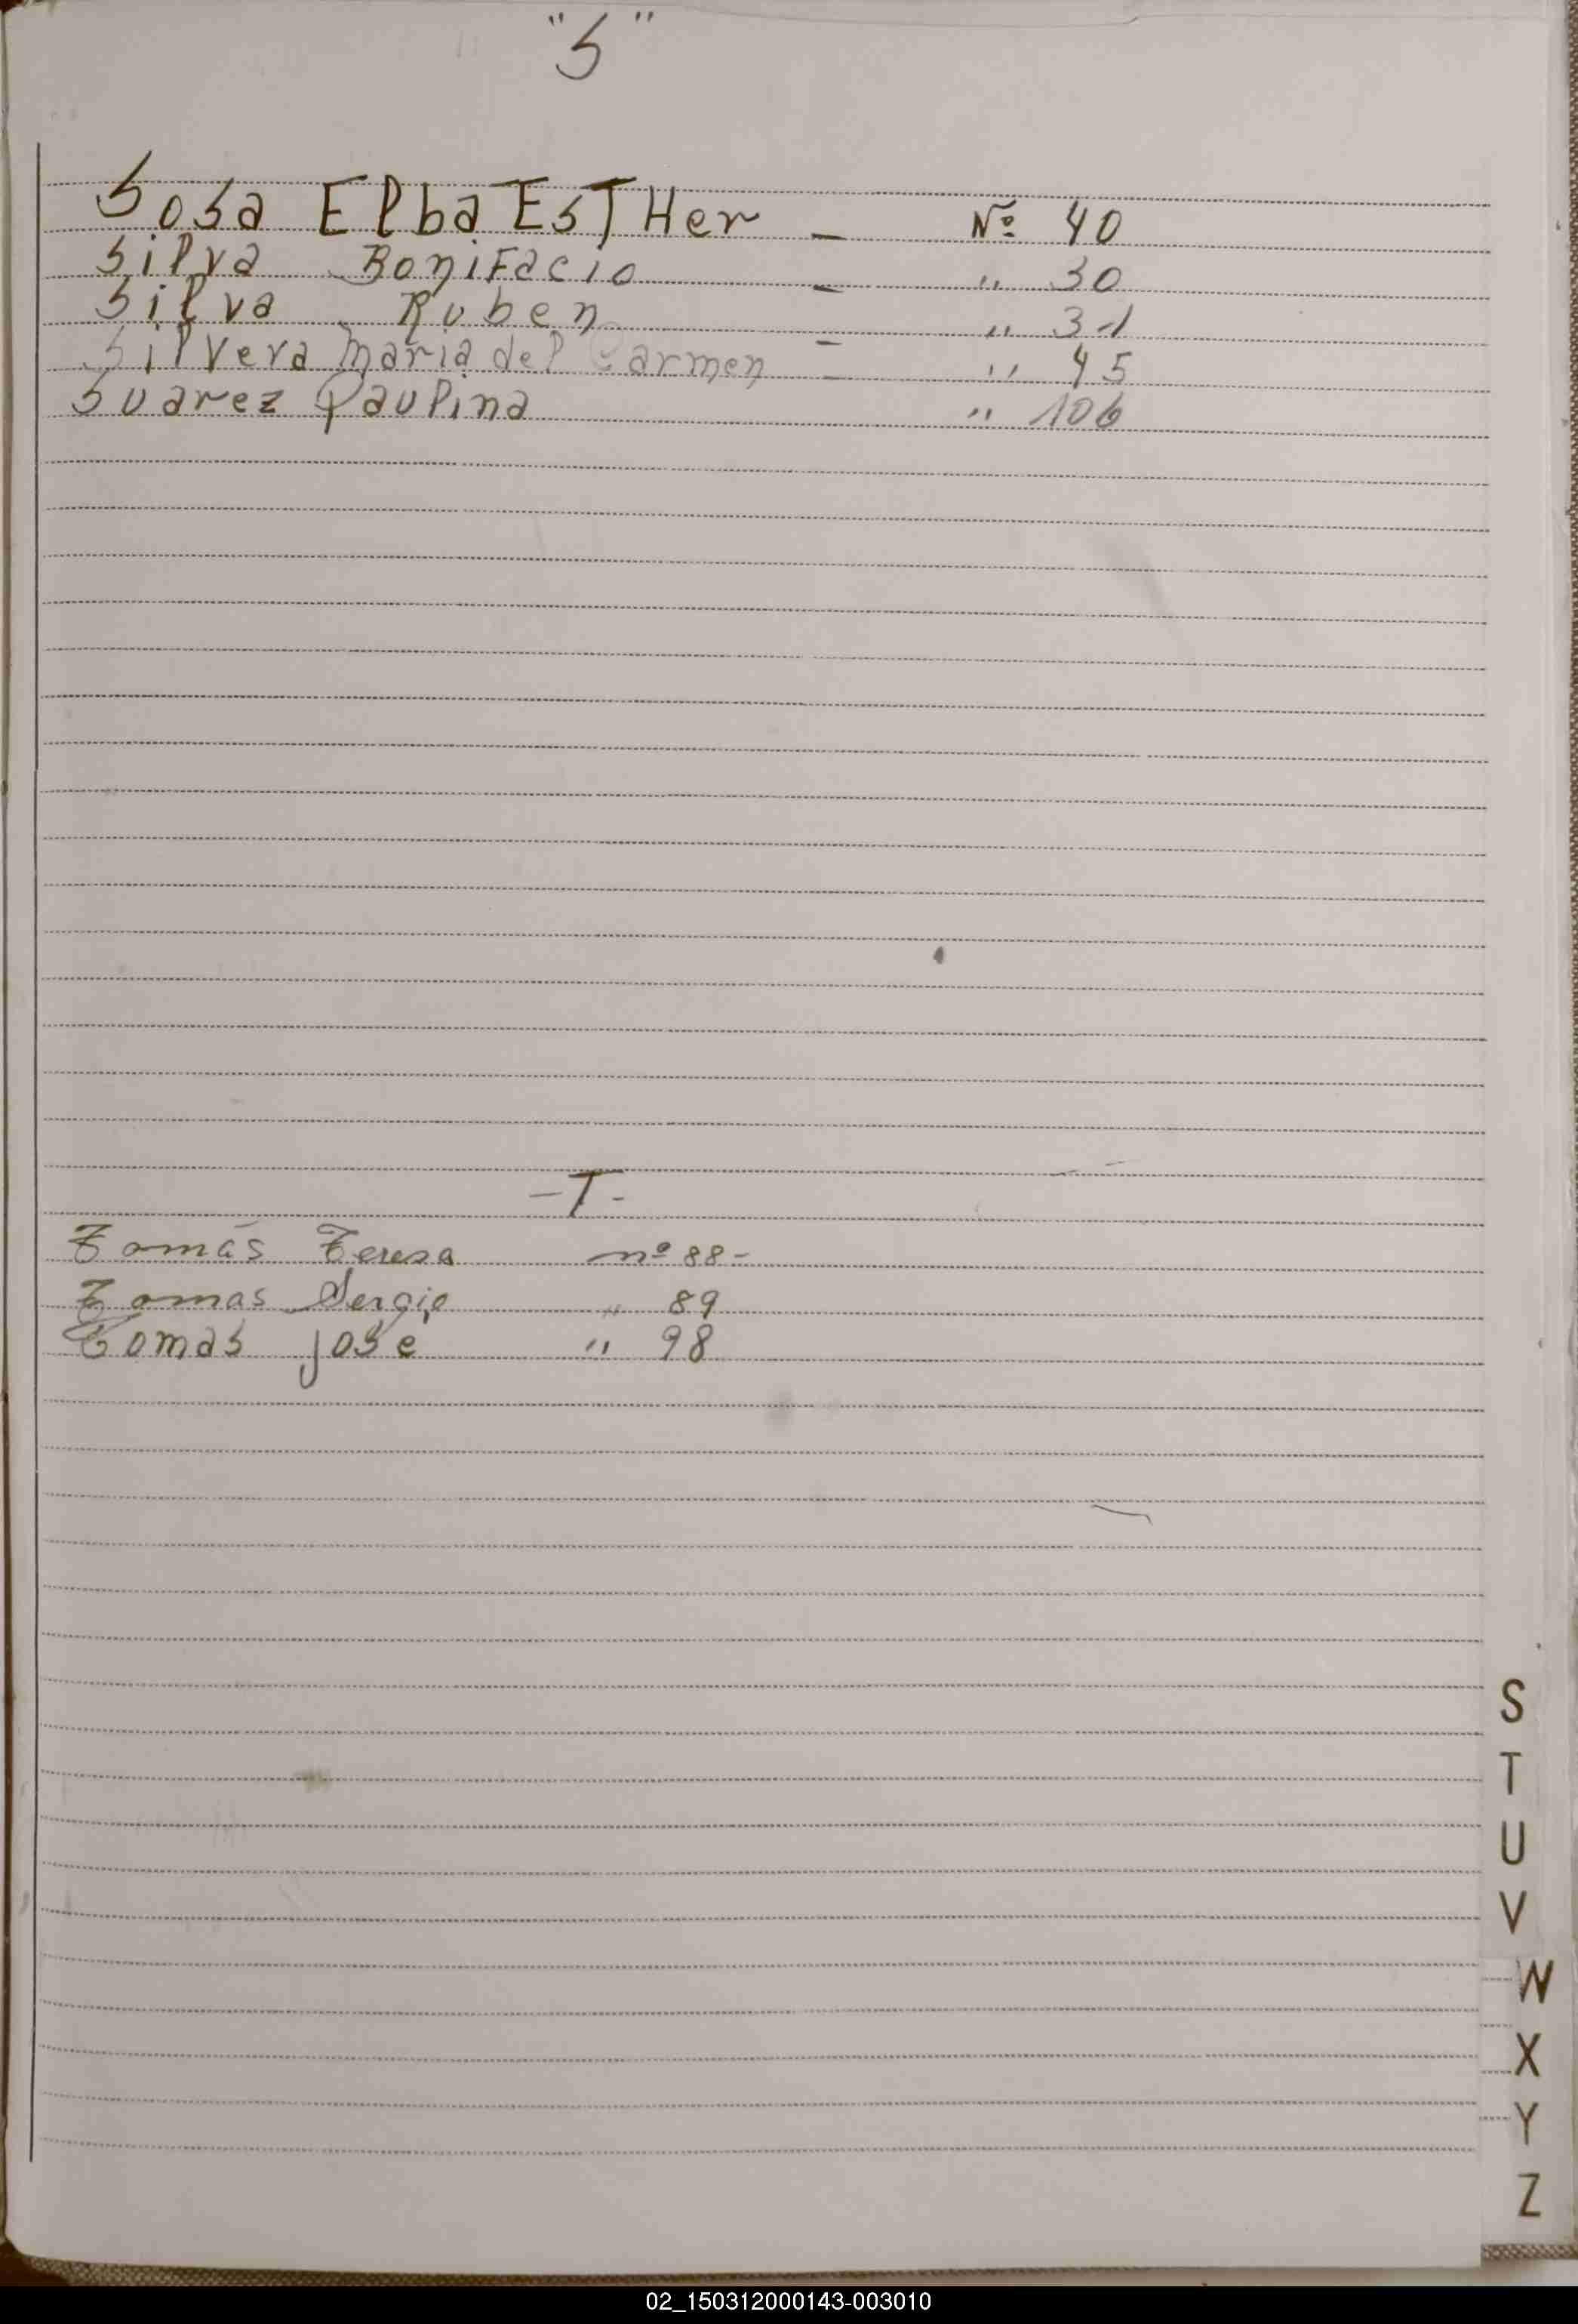 "S"
Sosa Elba EsTHer - Nº 40
Silva Bonifacio = " 30
Silva Ruben = " 31
Silvera Maria del Carmen = " 45
Suarez Paulina " 106
-T-
Tomás Teresa nº 88-
Tomas Sergio " 89
Tomas jose " 98
S
T
U
V
W
X
Y
Z
02_150312000143-003010